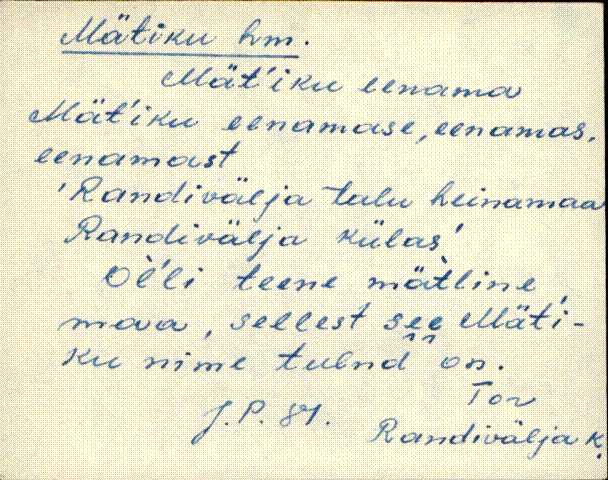 Mätiku hm.
Mät'iku eenama
Mät'iku eenamase, eenamas,
eenamast
'Randivälja talu heinamaa
Randivälja külas'
Òl'li teene mätline
maa, sellest see Mät'i-
ku nime tulnd on.
Tor
J.P. 81.
Randivälja k.